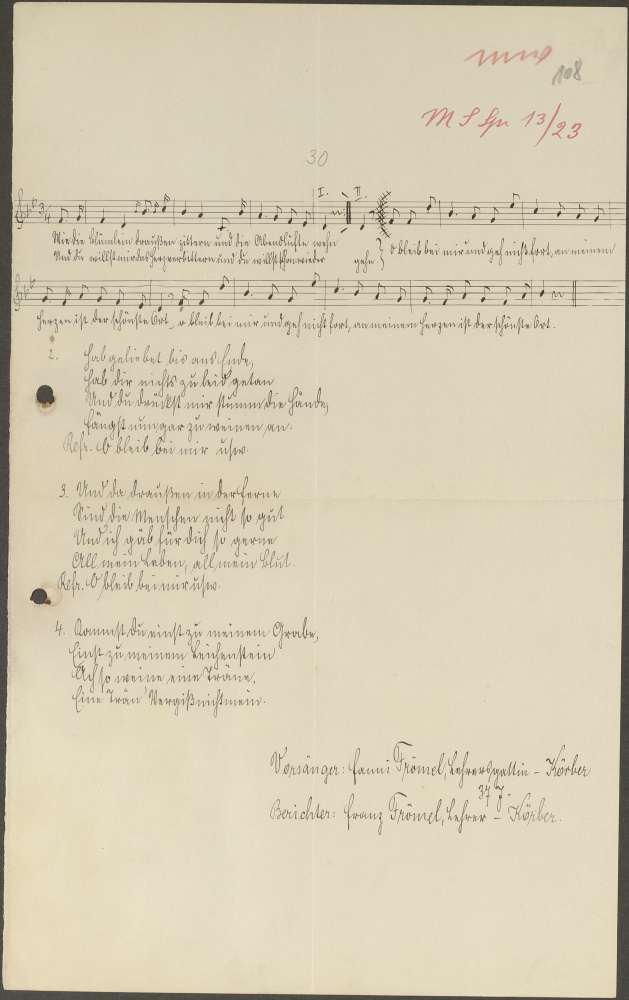 108
M S Spr 13/23
30
I. II.
Wie die Blümlein draußen zittern und die Abendlüfte wehn
Und du willst mir das Herz verbittern und du willst schon wieder gehn } O bleib bei mir und geh nicht fort, an meinem
Herzen ist der schönste Ort, o bleib bei mir und geh nicht fort, an meinem Herzen ist der schönste Ort.
2. Hab geliebet bis ans Ende,
Hab dir nichts zu leid getan
Und du drückst mir stumm die Hände,
Fängst nun gar zu weinen an.
Refr. O bleib bei mir usw.
3. Und da draußen in der Ferne
Sind die Menschen nicht so gut
Und ich gäb für dich so gerne
All mein Leben, all mein Blut.
Refr. O bleib bei mir usw.
4. Kommst du einst zu meinem Grabe,
Einst zu meinem Leichenstein
Ach so weine eine Träne,
Eine Trän' Vergißnichtmein.
Vorsänger: Fanni Frömel, Lehrersgattin – Körber
37 J.
Berichter: Franz Frömel, Lehrer – Körber.